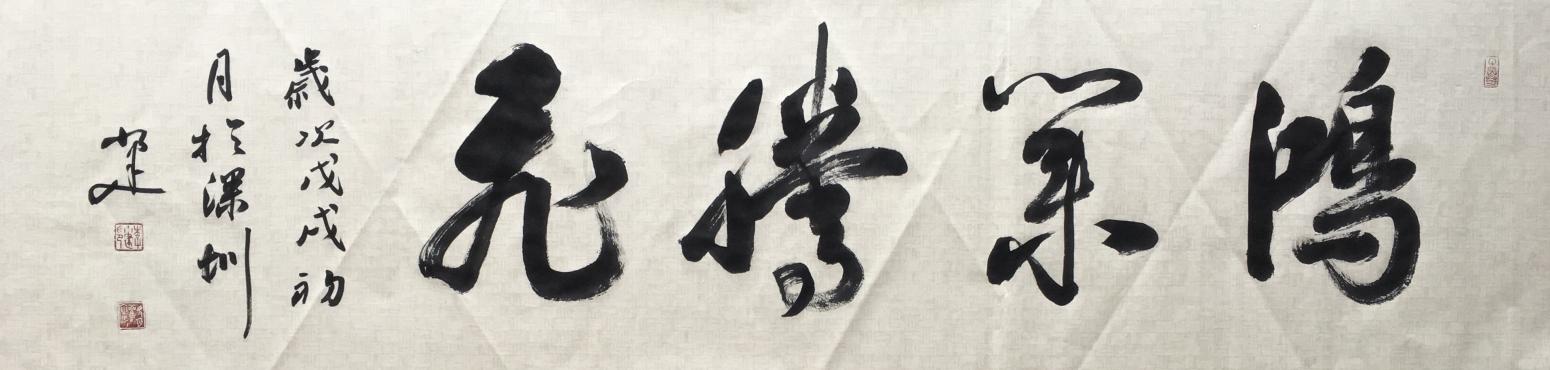 鴻業騰飛
歲次戊戌初
月於深圳
建